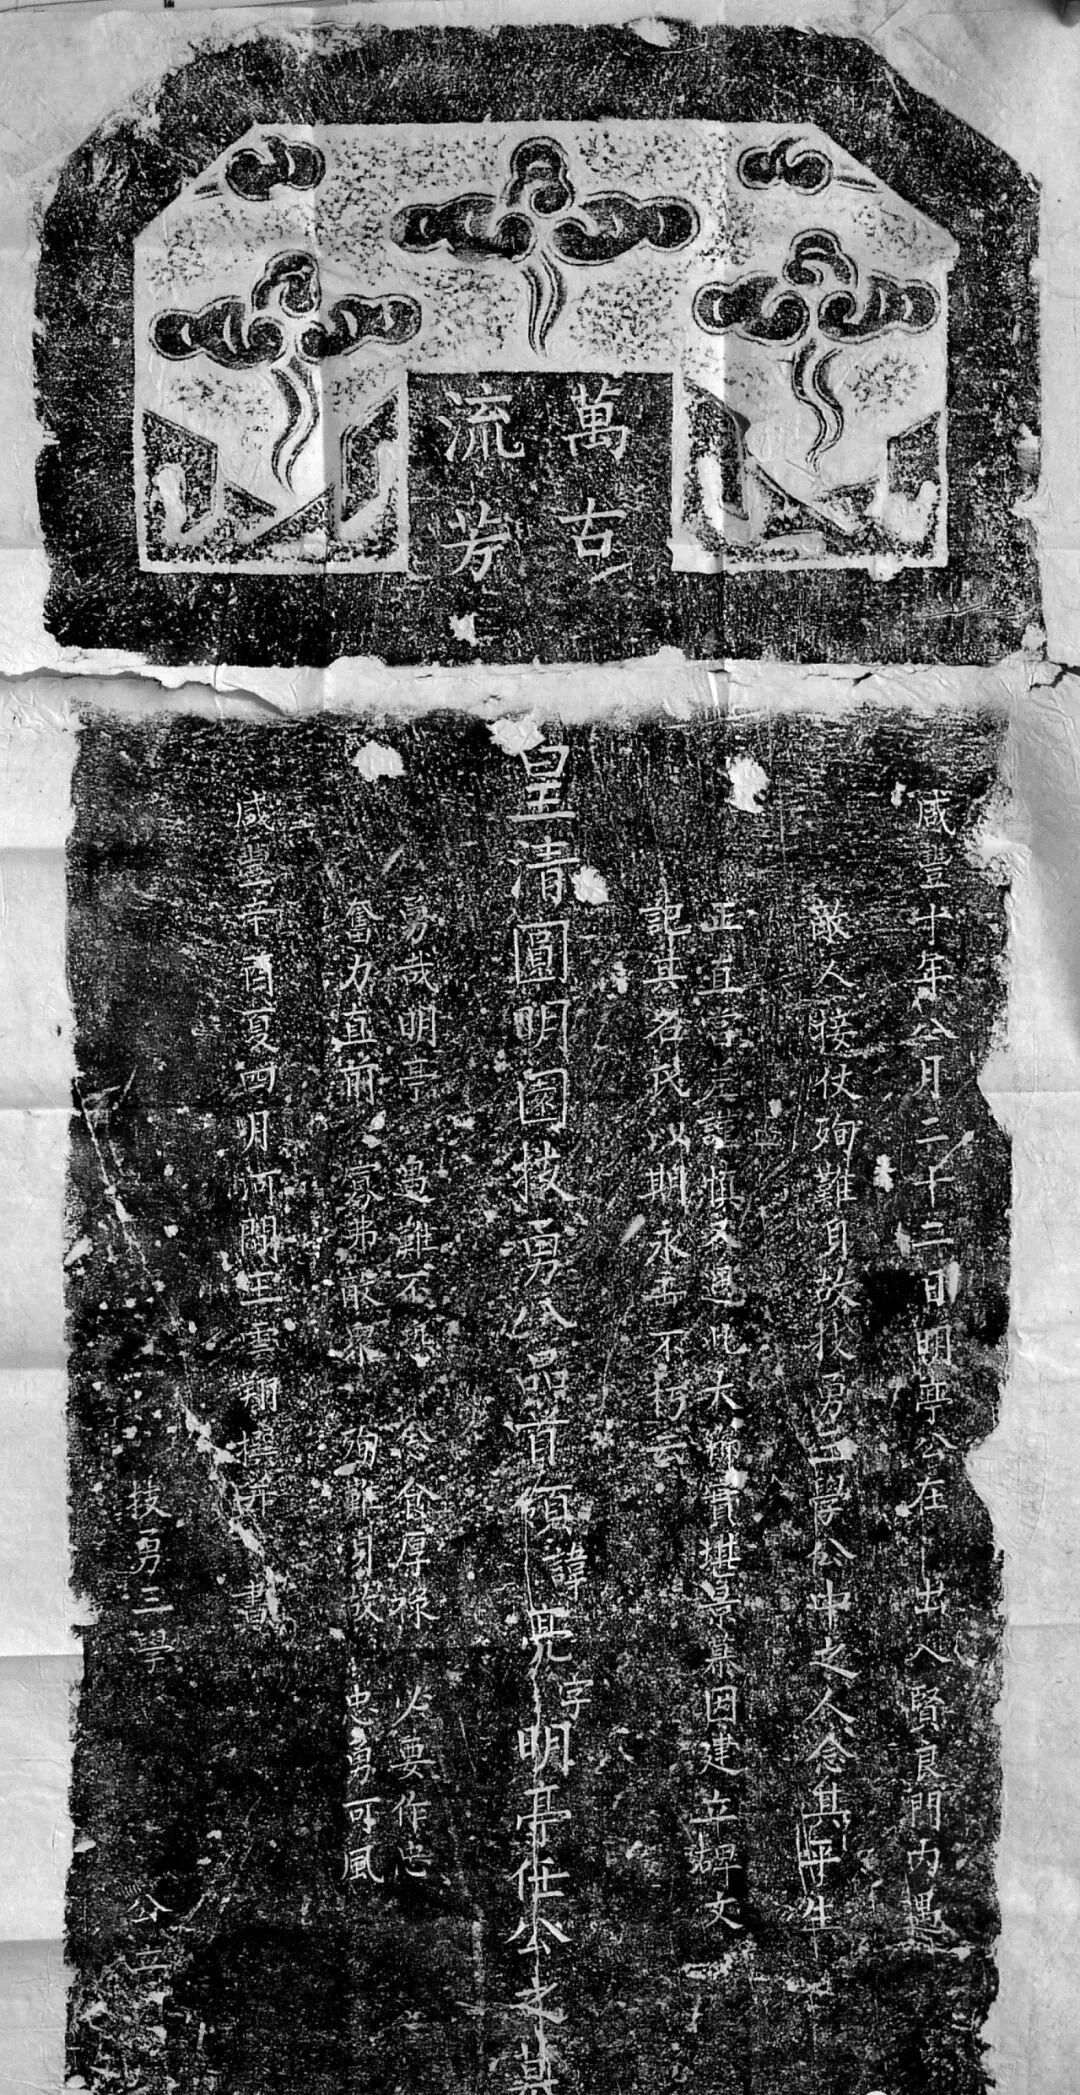 萬古
流芳
咸豐十年八月二十二日明亭公在出入賢良門內遇
敵人接仗殉難身故技勇三學公中之人念其平生
正直謹慎又遇此大節實堪景慕因建立碑文
記其名氏以期永垂不朽云
皇清圓明園技勇八品首領諱亮字明亭任公之墓
勇哉明亭 遇難不恐 念食厚祿 必要作忠
奮力直前 寡弗敵眾 殉難身故 忠勇可風
咸豐辛酉夏四月河間王雲翔撰并書
技勇三學 公立